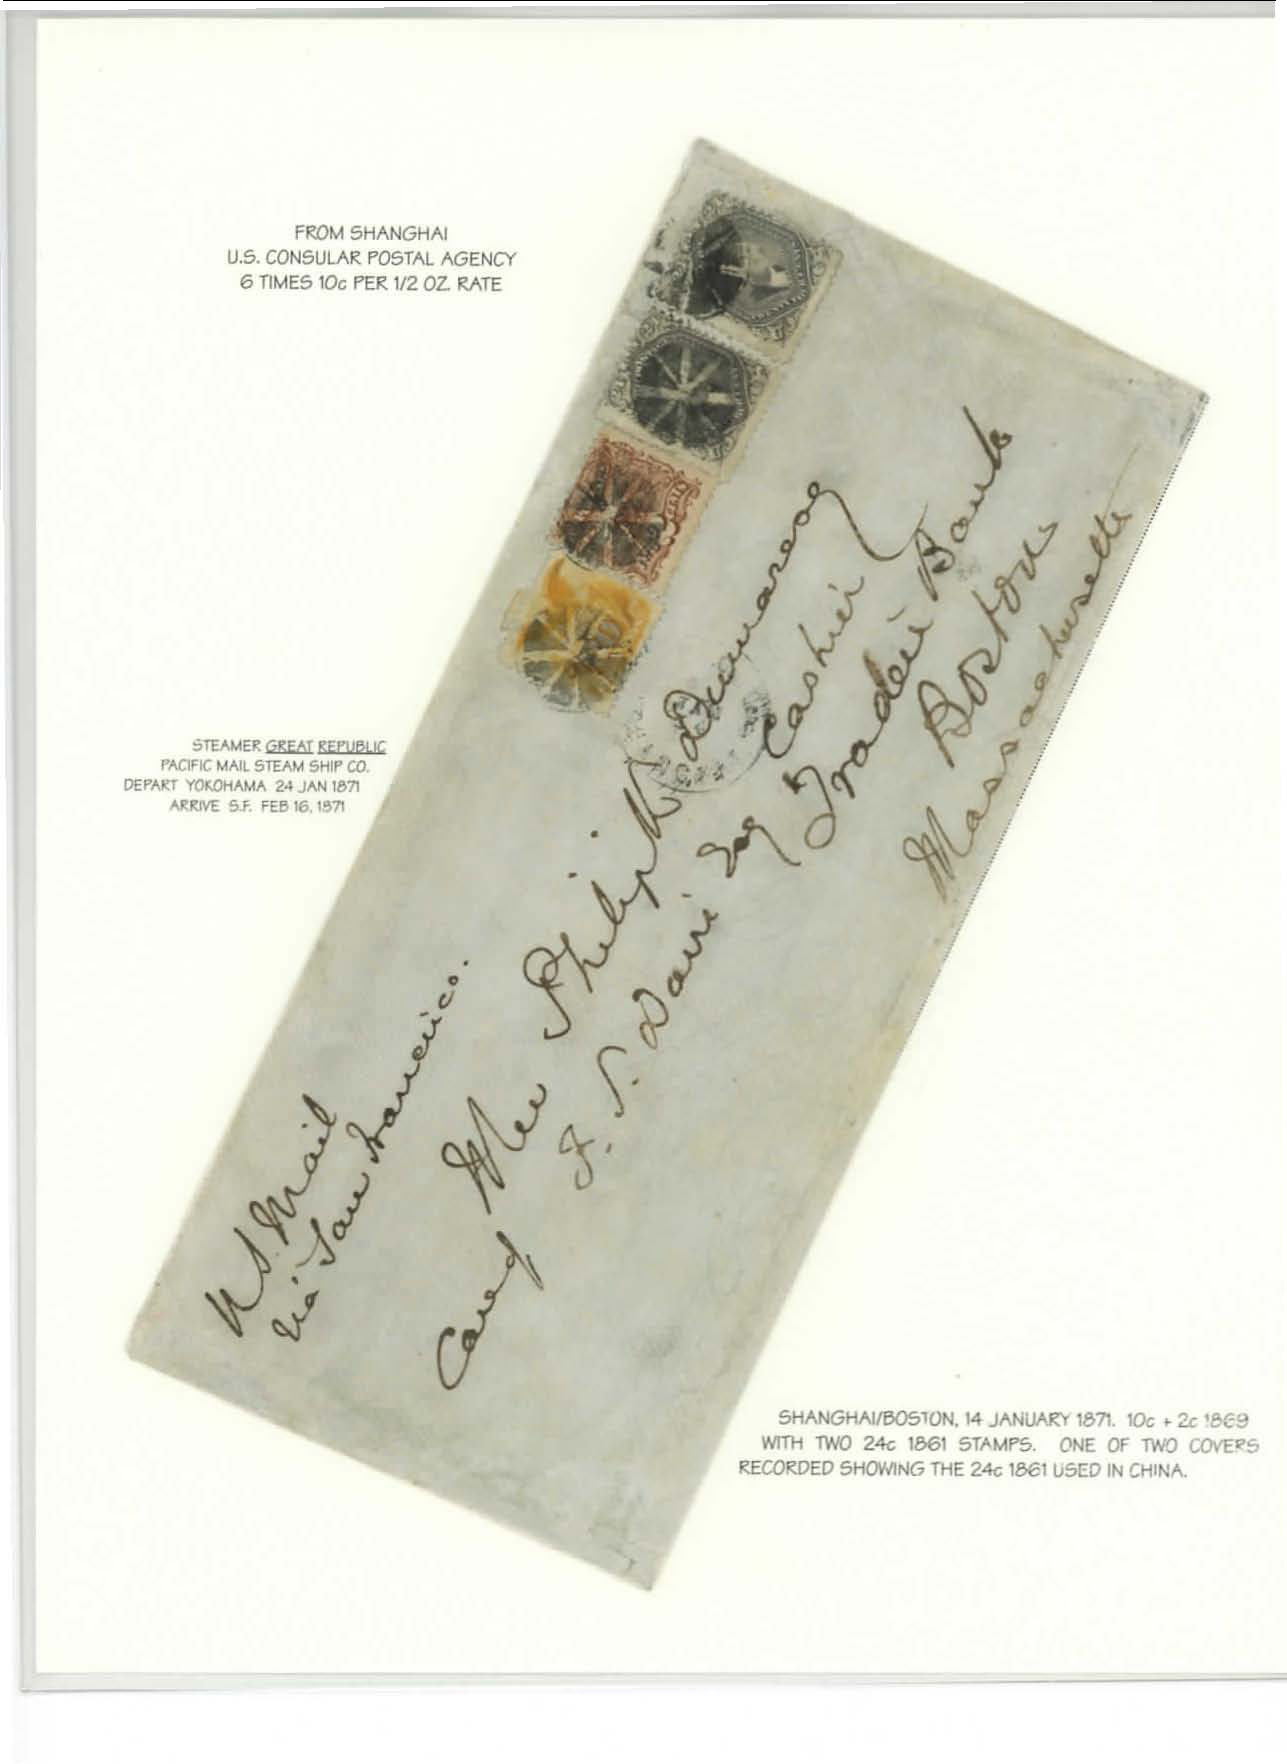 FROM SHANGHAI
U.S. CONSULAR POSTAL AGENCY
6 TIMES 10c PER 1/2 OZ. RATE
STEAMER GREAT REPUBLIC
PACIFIC MAIL STEAM SHIP CO.
DEPART YOKOHAMA 24 JAN 1871
ARRIVE S.F. FEB 16, 1871
U.S. Mail
Via San Francisco.
Mrs Philip Dumaresq
Care of F. S. Davis Esq Cashier
Traders Bank
Boston
Massachusetts
SHANGHAI/BOSTON, 14 JANUARY 1871. 10c + 2c 1869
WITH TWO 24c 1861 STAMPS. ONE OF TWO COVERS
RECORDED SHOWING THE 24c 1861 USED IN CHINA.